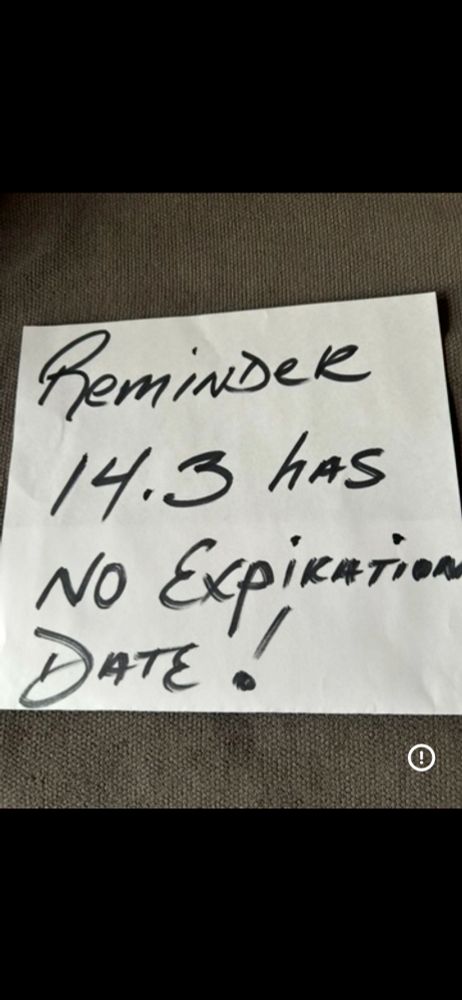 Reminder
14.3 has
No Expiration
Date!